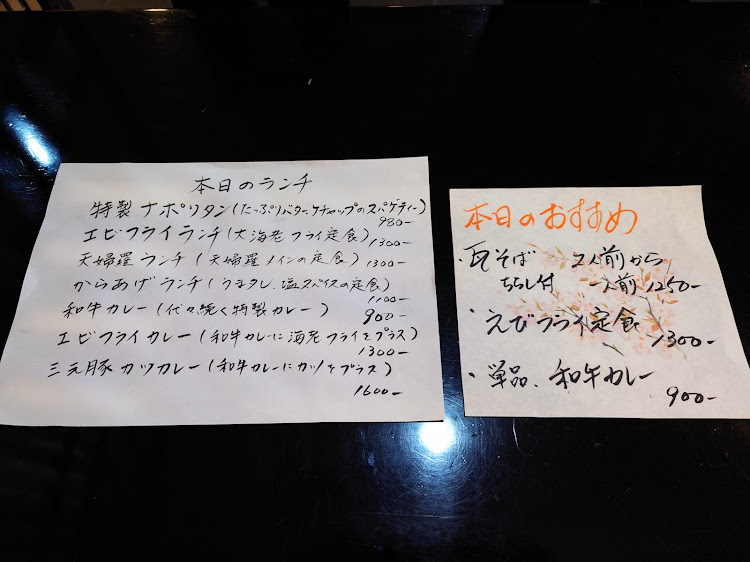 本日のランチ
特製 ナポリタン(たっぷりバター、ケチャップのスパゲティー)
980-
エビフライランチ(大海老フライ定食)
1300-
天婦羅ランチ(天婦羅メインの定食)
1300-
からあげランチ(うまタレ、塩スパイスの定食)
1100-
和牛カレー(代々続く特製カレー)
900-
エビフライカレー(和牛カレーに海老フライをプラス)
1300-
三元豚カツカレー(和牛カレーにカツをプラス)
1600-
本日のおすすめ
・瓦そば 2人前から
ちらし付 一人前 1250-
・えびフライ定食
1300-
・単品、和牛カレー
900-